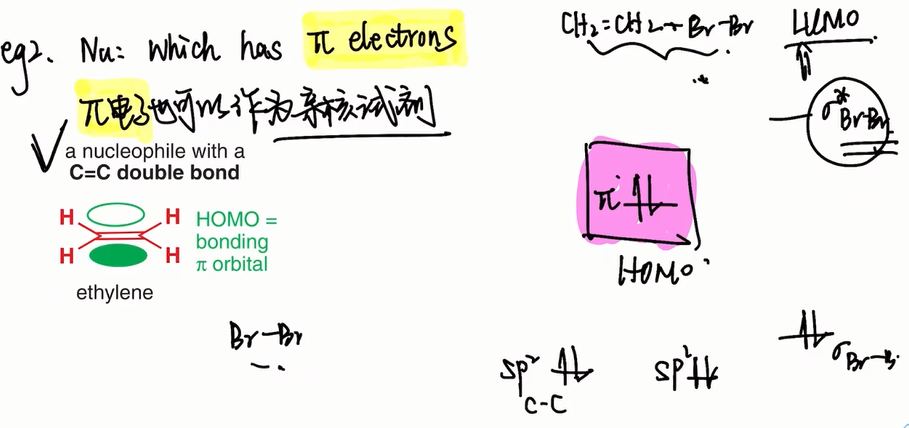 eg2. Nu: which has π electrons
π电子也可以作为亲核试剂
a nucleophile with a
C=C double bond
H H
H H
HOMO =
bonding
π orbital
ethylene
Br-Br
CH2=CH2+Br-Br
LUMO
σ*
Br-Br
π
HOMO
sp²
C-C
sp²
σ